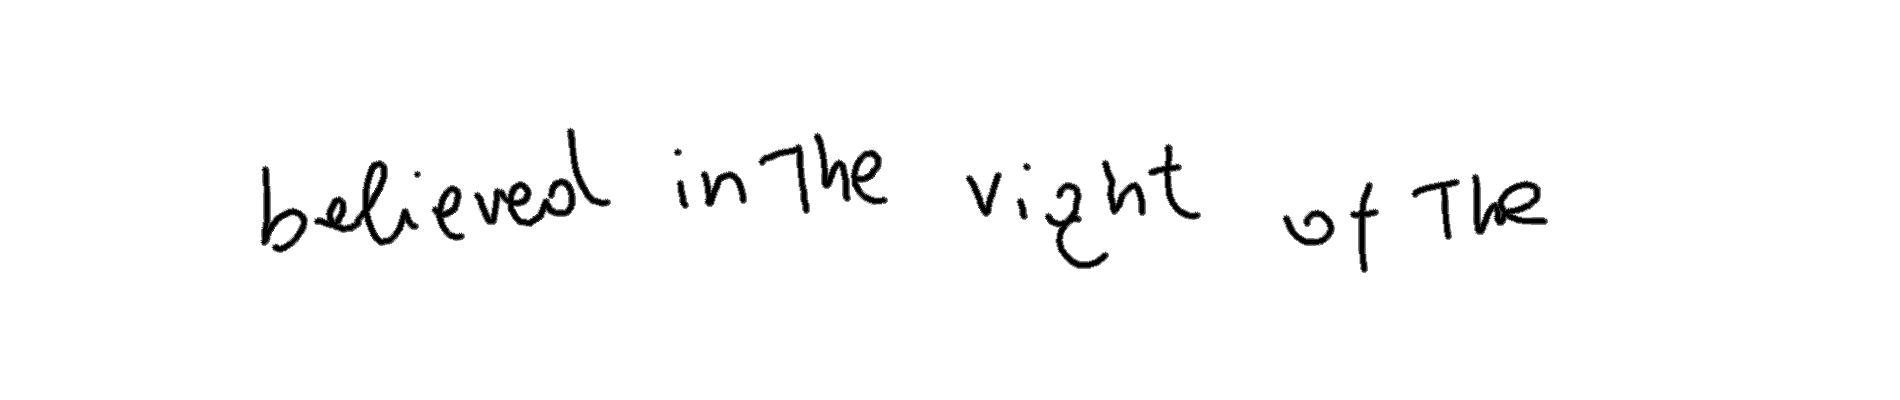 believed in the right of the